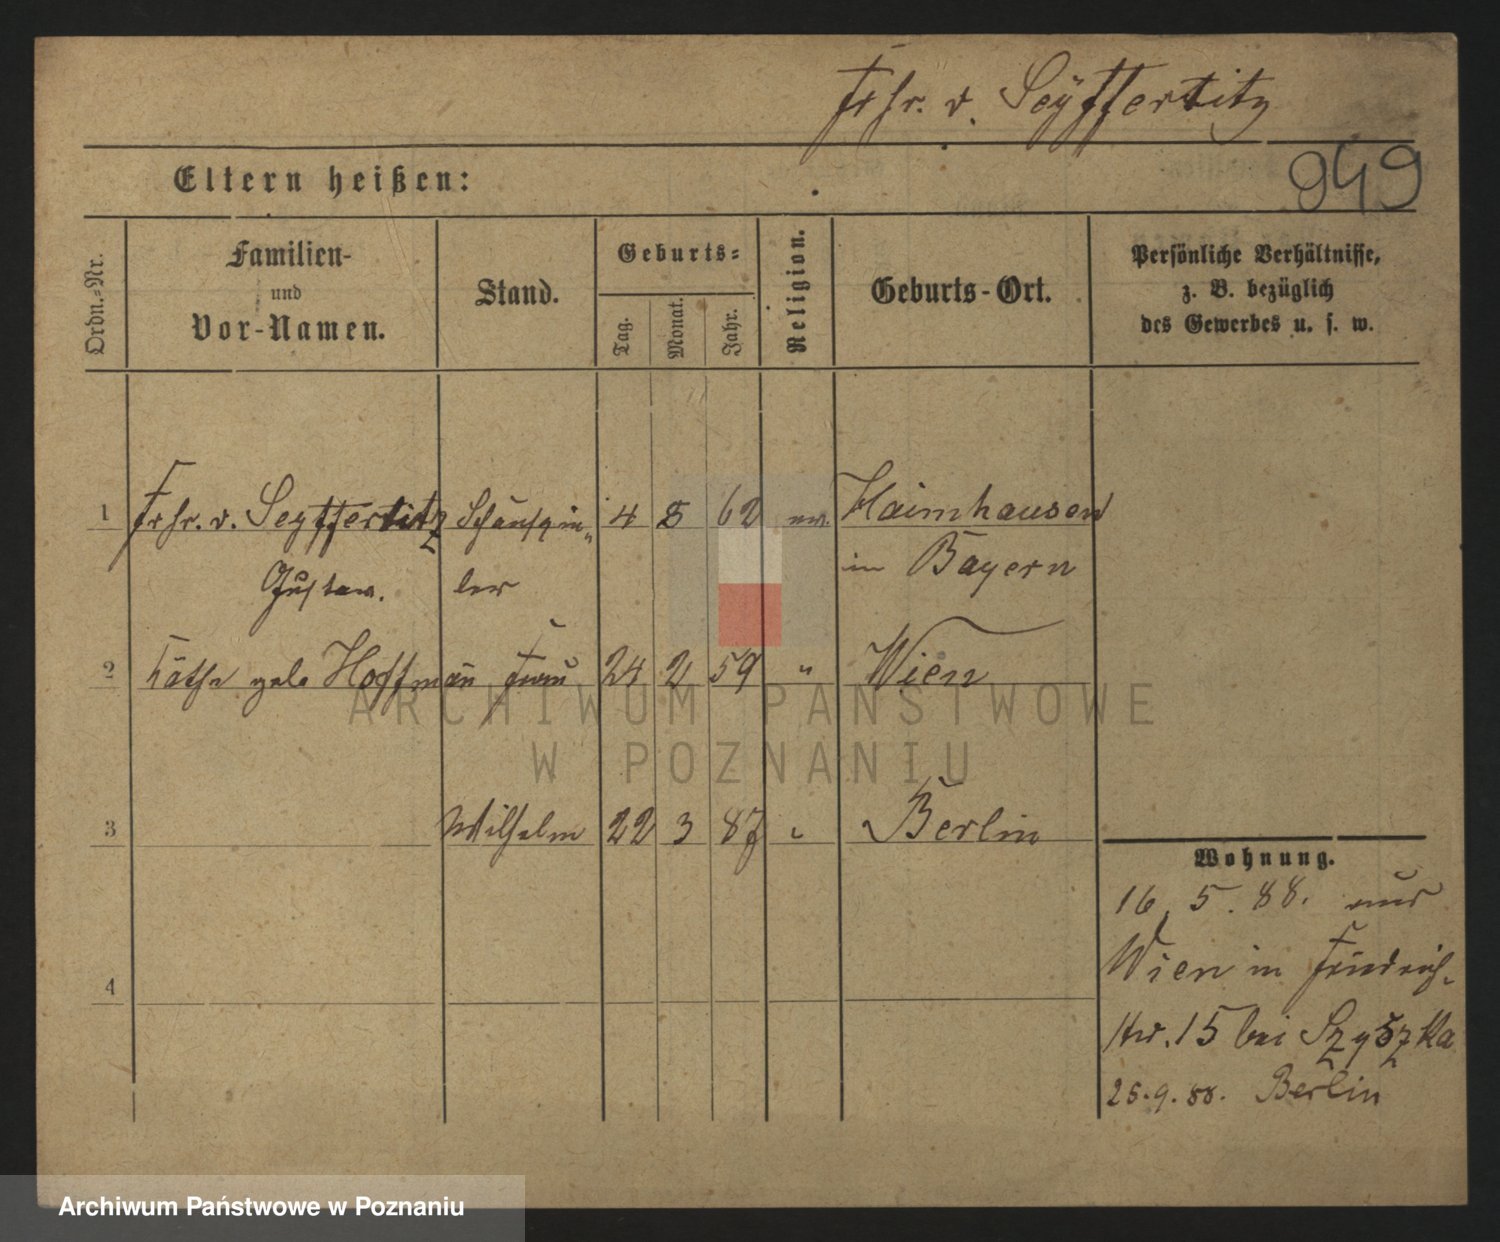 Frhr. v. Seÿffertitz
Eltern heißen:
949
Ordn.-Nr.
Familien-
und
Vor-Namen.
Stand.
Geburts-
Tag.
Monat.
Jahr.
Religion.
Geburts-Ort.
Persönliche Verhältnisse,
z. B. bezüglich
des Gewerbes u. s. w.
1 Frhr. v. Seyffertitz Schauspie- 4 8 62 ev. Haimhausen
Gustav. ler in Bayern
2 Käthe geb. Hoffmañ Frau 24 2 59 " Wien
3 Wilhelm 22 3 87 " Berlin
4
Wohnung.
16. 5. 88. aus
Wien in Friedrich-
str. 15 bei Szyszka
25.9.88. Berlin
ARCHIWUM PAŃSTWOWE
W POZNANIU
Archiwum Państwowe w Poznaniu